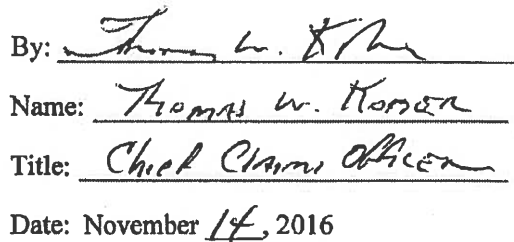 By: Thomas W.
Name: Thomas W.
Title: Chief Claims Officer
Date: November 14, 2016